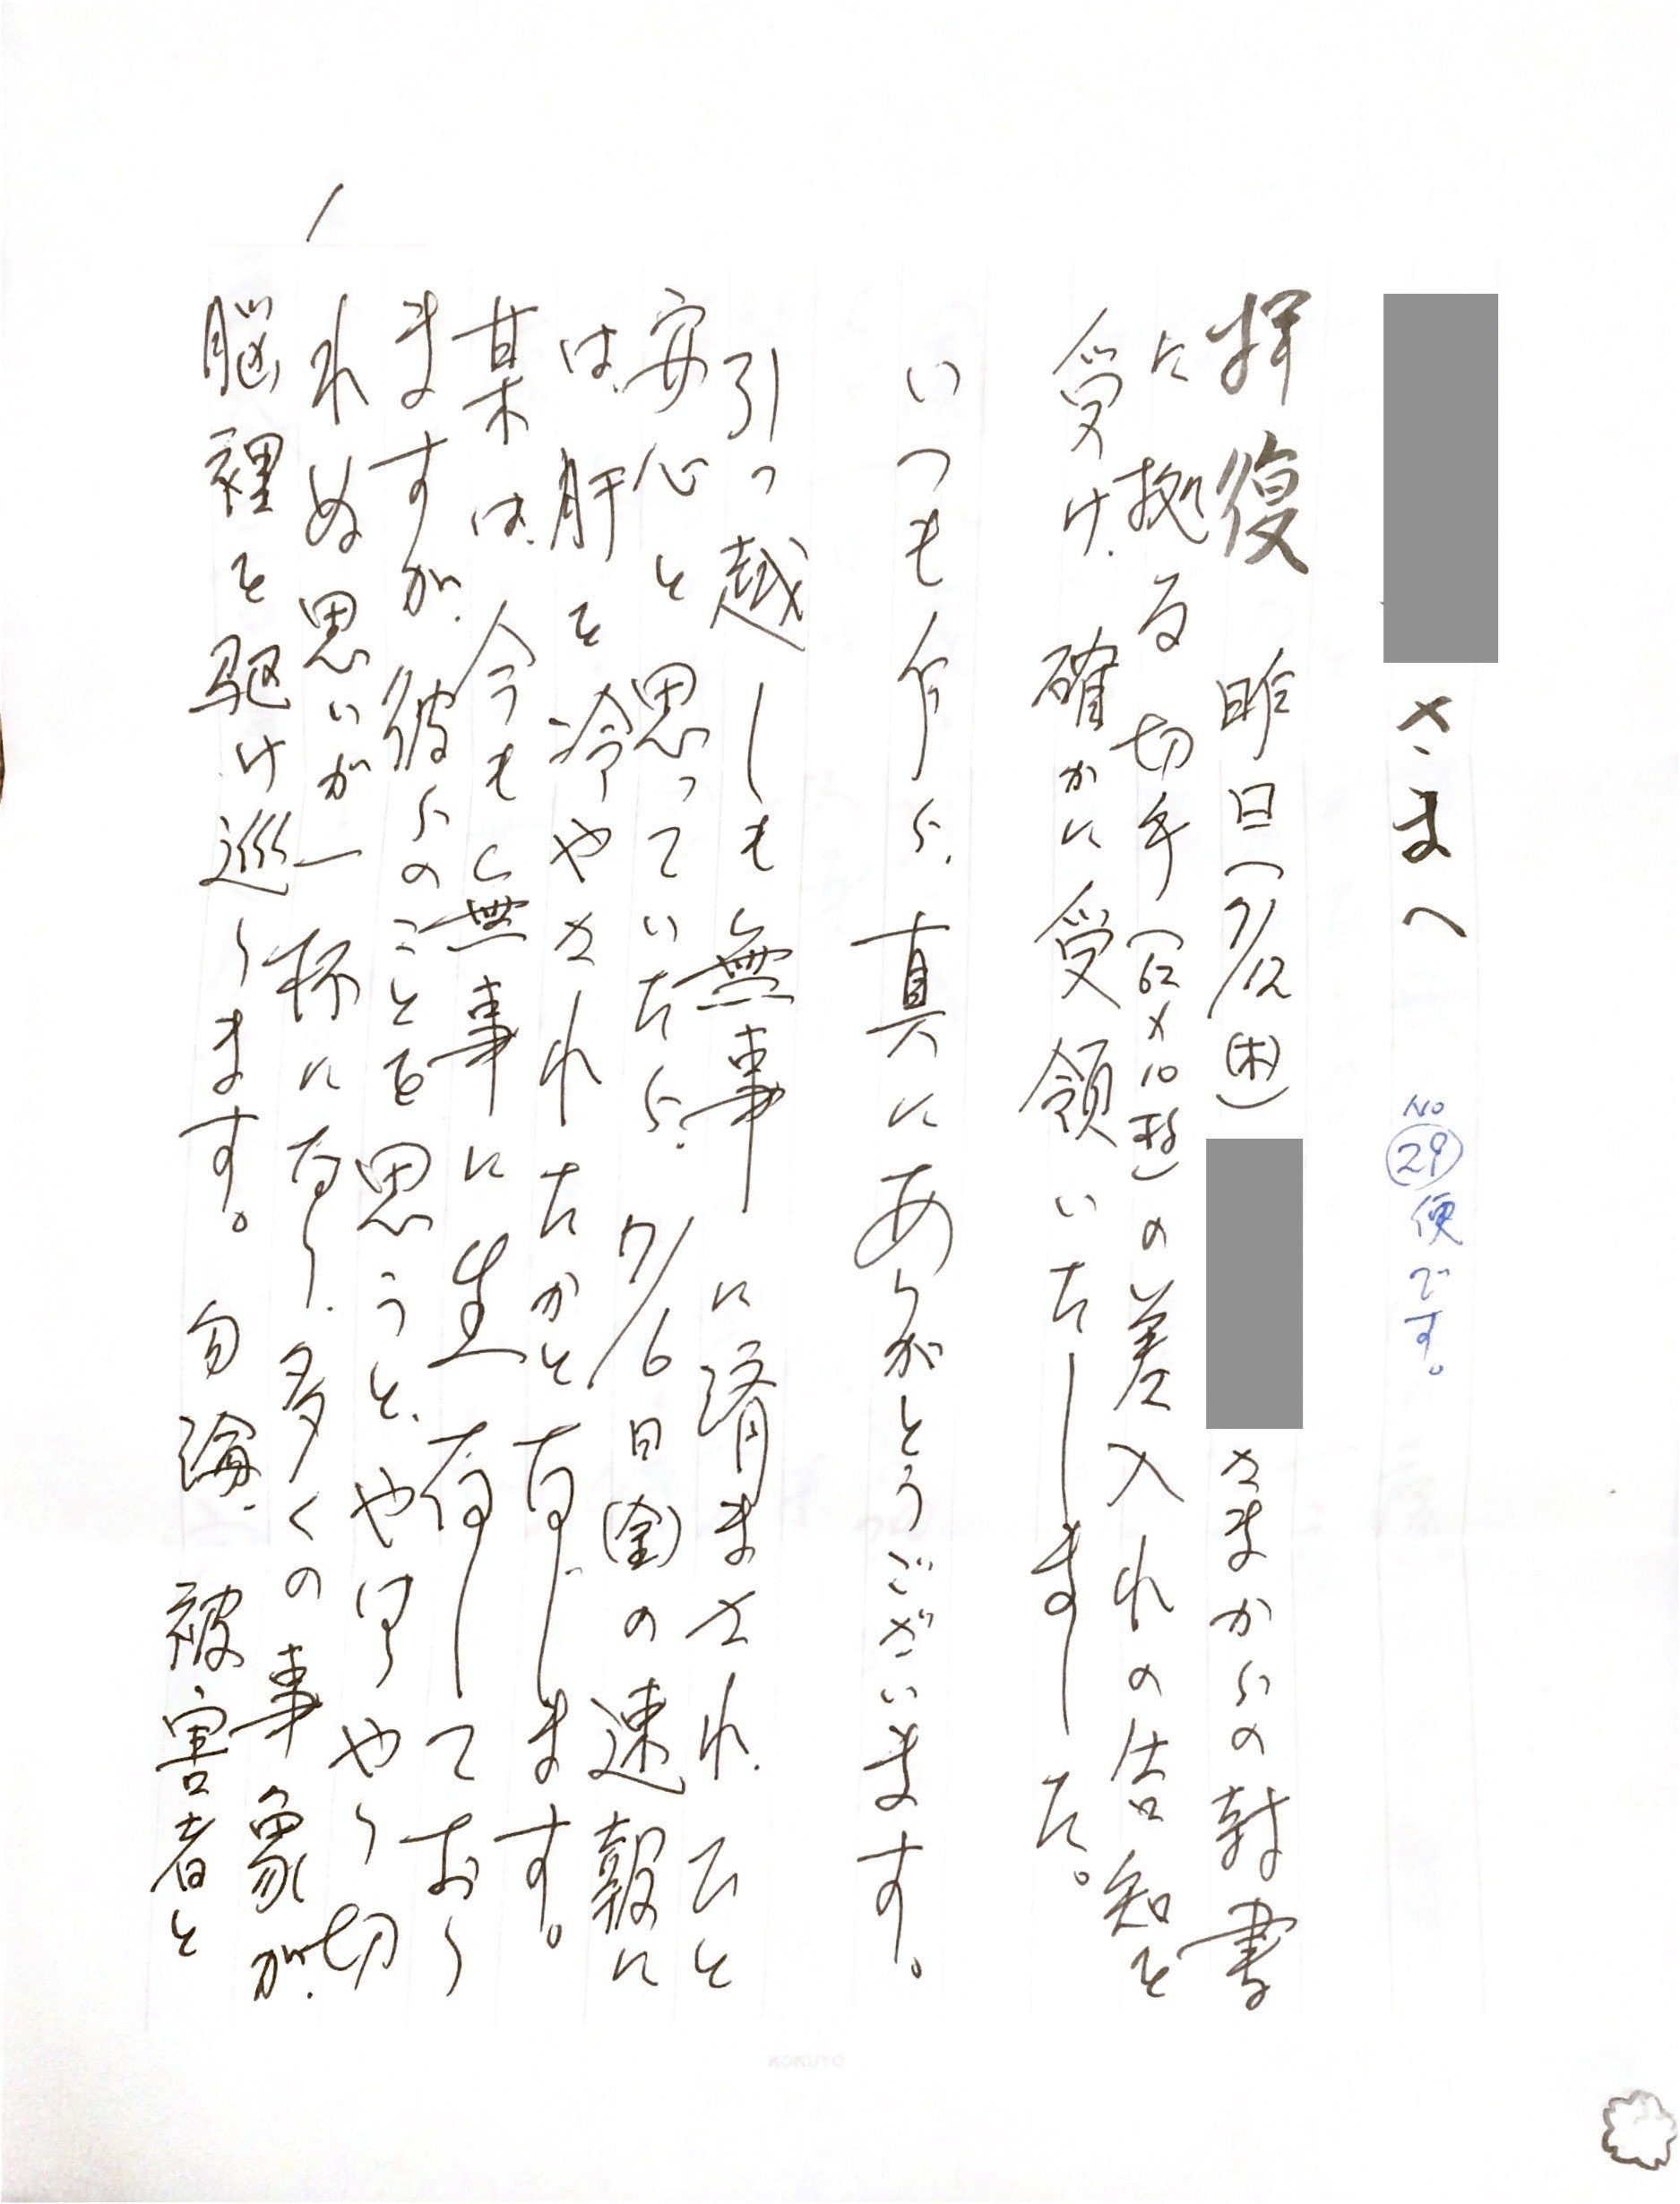 さまへ No㉙便です。
拝復 昨日(7/12(木)) さまからの封書
に拠る切手(62×10型)の差入れの告知を
受け、確かに受領いたしました。
いつも乍ら、真にありがとうございます。
引っ越しも無事に済まされ、ひと
安心と思っていたら、7/6日(金)の速報に
は、肝を冷やされたかと存じます。
某は、今も無事に生存しており
ますが、彼らのことを思うと、やはりやり切
れぬ思いが一杯になり、多くの事象が、
脳裡を駆け巡ります。勿論、被害者と
1